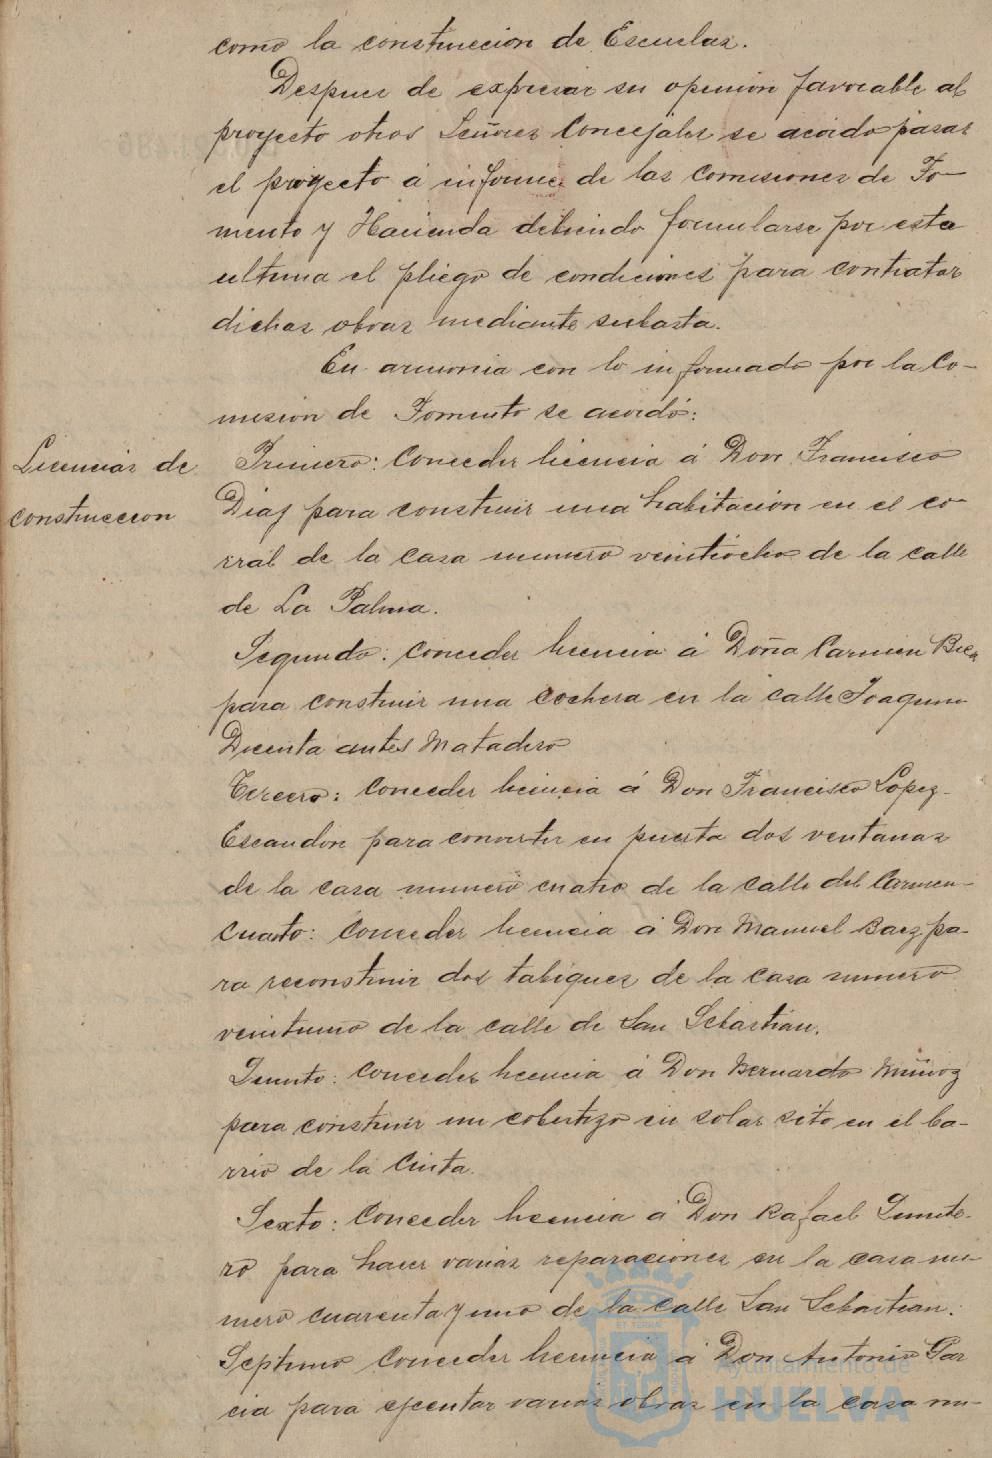 como la construccion de Escuelas.
Despues de expresar su opinion favorable al
proyecto otros Señores Concejales se acordo pasar
el proyecto á informe de las Comisiones de Fo-
mento y Hacienda debiendo formularse por esta
ultima el pliego de condiciones para contratar
dichas obras mediante subasta.
En armonia con lo informado por la Co-
mision de Fomento se acordó:
Licencias de
construccion
Primero: Conceder licencia á Don Francisco
Diaz para construir una habitacion en el co-
rral de la casa numero veintiocho de la calle
de La Palma.
Segundo: Conceder licencia á Doña Carmen
para construir una cochera en la calle Joaquin
Dicenta antes Matadero
Tercero: Conceder licencia á Don Francisco Lopez
Escandon para convertir en puerta dos ventanas
de la casa numero cuatro de la calle del Carmen-
Cuarto: Conceder licencia á Don Manuel Baez pa-
ra reconstruir dos tabiques de la casa numero
veintiuno de la calle de San Sebastian.
Quinto: Conceder licencia á Don Bernardo Muñoz
para construir un cobertizo en solar sito en el ba-
rrio de la Cinta.
Sexto: Conceder licencia á Don Rafael Quinte-
ro para hacer varias reparaciones en la casa nu-
mero cuarenta y uno de la calle San Sebastian.
Septimo Conceder licencia á Don Antonio Gar
cia para ejecutar varias obras en la casa nu-
Ayuntamiento de
HUELVA